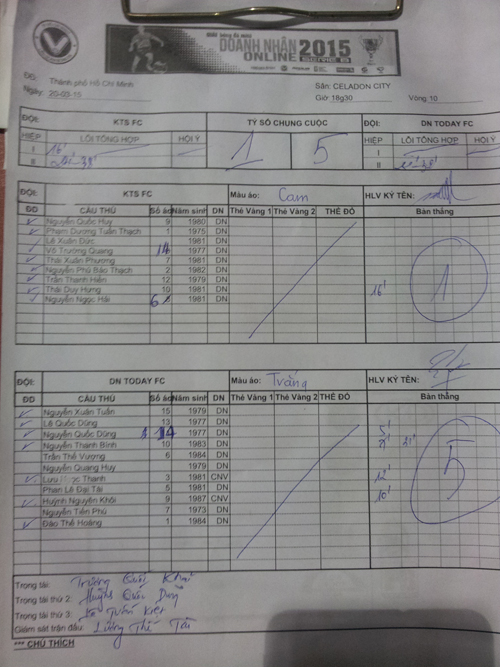 GIẢI bóng đá mini
DOANH NHÂN 2015
ONLINE
ĐĐ: Thành phố Hồ Chí Minh
Sân: CELADON CITY
Ngày: 20-03-15
Giờ: 18g30 Vòng 10
ĐỘI: KTS FC TỶ SỐ CHUNG CUỘC ĐỘI: DN TODAY FC
HIỆP LỖI TỔNG HỢP HỘI Ý 1 5 HIỆP LỖI TỔNG HỢP HỘI Ý
I 16' I
II II
ĐỘI: KTS FC Màu áo: Cam HLV KÝ TÊN:
ĐD CẦU THỦ Số áo Năm sinh DN Thẻ Vàng 1 Thẻ Vàng 2 THẺ ĐỎ Bàn thắng
Nguyễn Quốc Huy 9 1980 DN
Phạm Dương Tuấn Thạch 1 1975 DN
Lê Xuân Đức 1981 DN
Võ Trường Quang 14 1977 DN
Thái Xuân Phương 7 1981 DN
Nguyễn Phú Bảo Thạch 2 1982 DN
Trần Thanh Hiền 12 1979 DN
Thái Duy Hưng 10 1981 DN 16' 1
Nguyễn Ngọc Hải 6 1981 DN
ĐỘI: DN TODAY FC Màu áo: Trắng HLV KÝ TÊN:
ĐD CẦU THỦ Số áo Năm sinh DN Thẻ Vàng 1 Thẻ Vàng 2 THẺ ĐỎ Bàn thắng
Nguyễn Xuân Tuấn 15 1979 DN
Lê Quốc Dũng 13 1977 DN 5'
Nguyễn Quốc Dũng 14 1977 DN
Nguyễn Thanh Bình 10 1983 DN
Trần Thế Vương 6 1984 DN 5
Nguyễn Quang Huy 1979 DN
Lưu Thanh 3 1981 CNV 12'
Phan Lê Đại Tài 5 1981 DN
Huỳnh Nguyên Khôi 9 1987 CNV 10'
Nguyễn Tiến Phú 7 1973 DN
Đào Thế Hoàng 1 1984 DN
Trọng tài: Trương Quốc
Trọng tài thứ 2: Huỳnh Quốc Dũng
Trọng tài thứ 3: Tuấn Kiệt
Giám sát trận đấu: Lương Thế Tài
*** CHÚ THÍCH